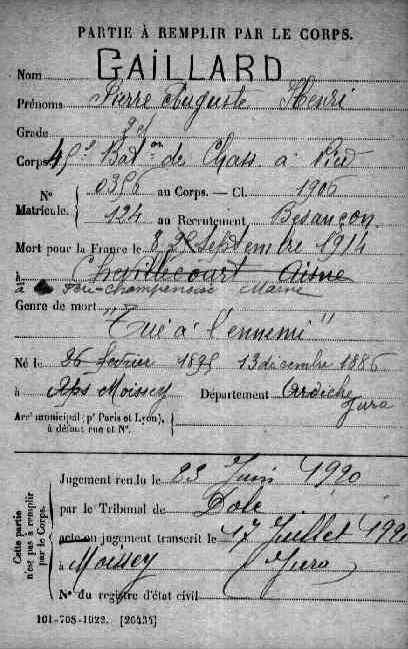 PARTIE À REMPLIR PAR LE CORPS.
Nom GAILLARD
Prénoms Pierre Auguste Henri
Grade 2e
Corps 45e Bat on de Chass à Pied
N° Matricule. 0356 au Corps. — Cl. 1906
124 au Recrutement Besançon
Mort pour la France le 8 Septembre 1914
à Chevillecourt Aisne
à la Fère-Champenoise Marne
Genre de mort "Tué à l'ennemi"
Né le 26 février 1895 13 décembre 1886
à Aps Moissey Département Ardèche Jura
Arrt municipal (pr Paris et Lyon), à défaut rue et N°.
Cette partie n'est pas à remplir par le Corps.
Jugement rendu le 23 Juin 1920
par le Tribunal de Dole
acte ou jugement transcrit le 17 Juillet 1920
à Moissey Jura
N° du registre d'état civil
101-708-1922. [26434]